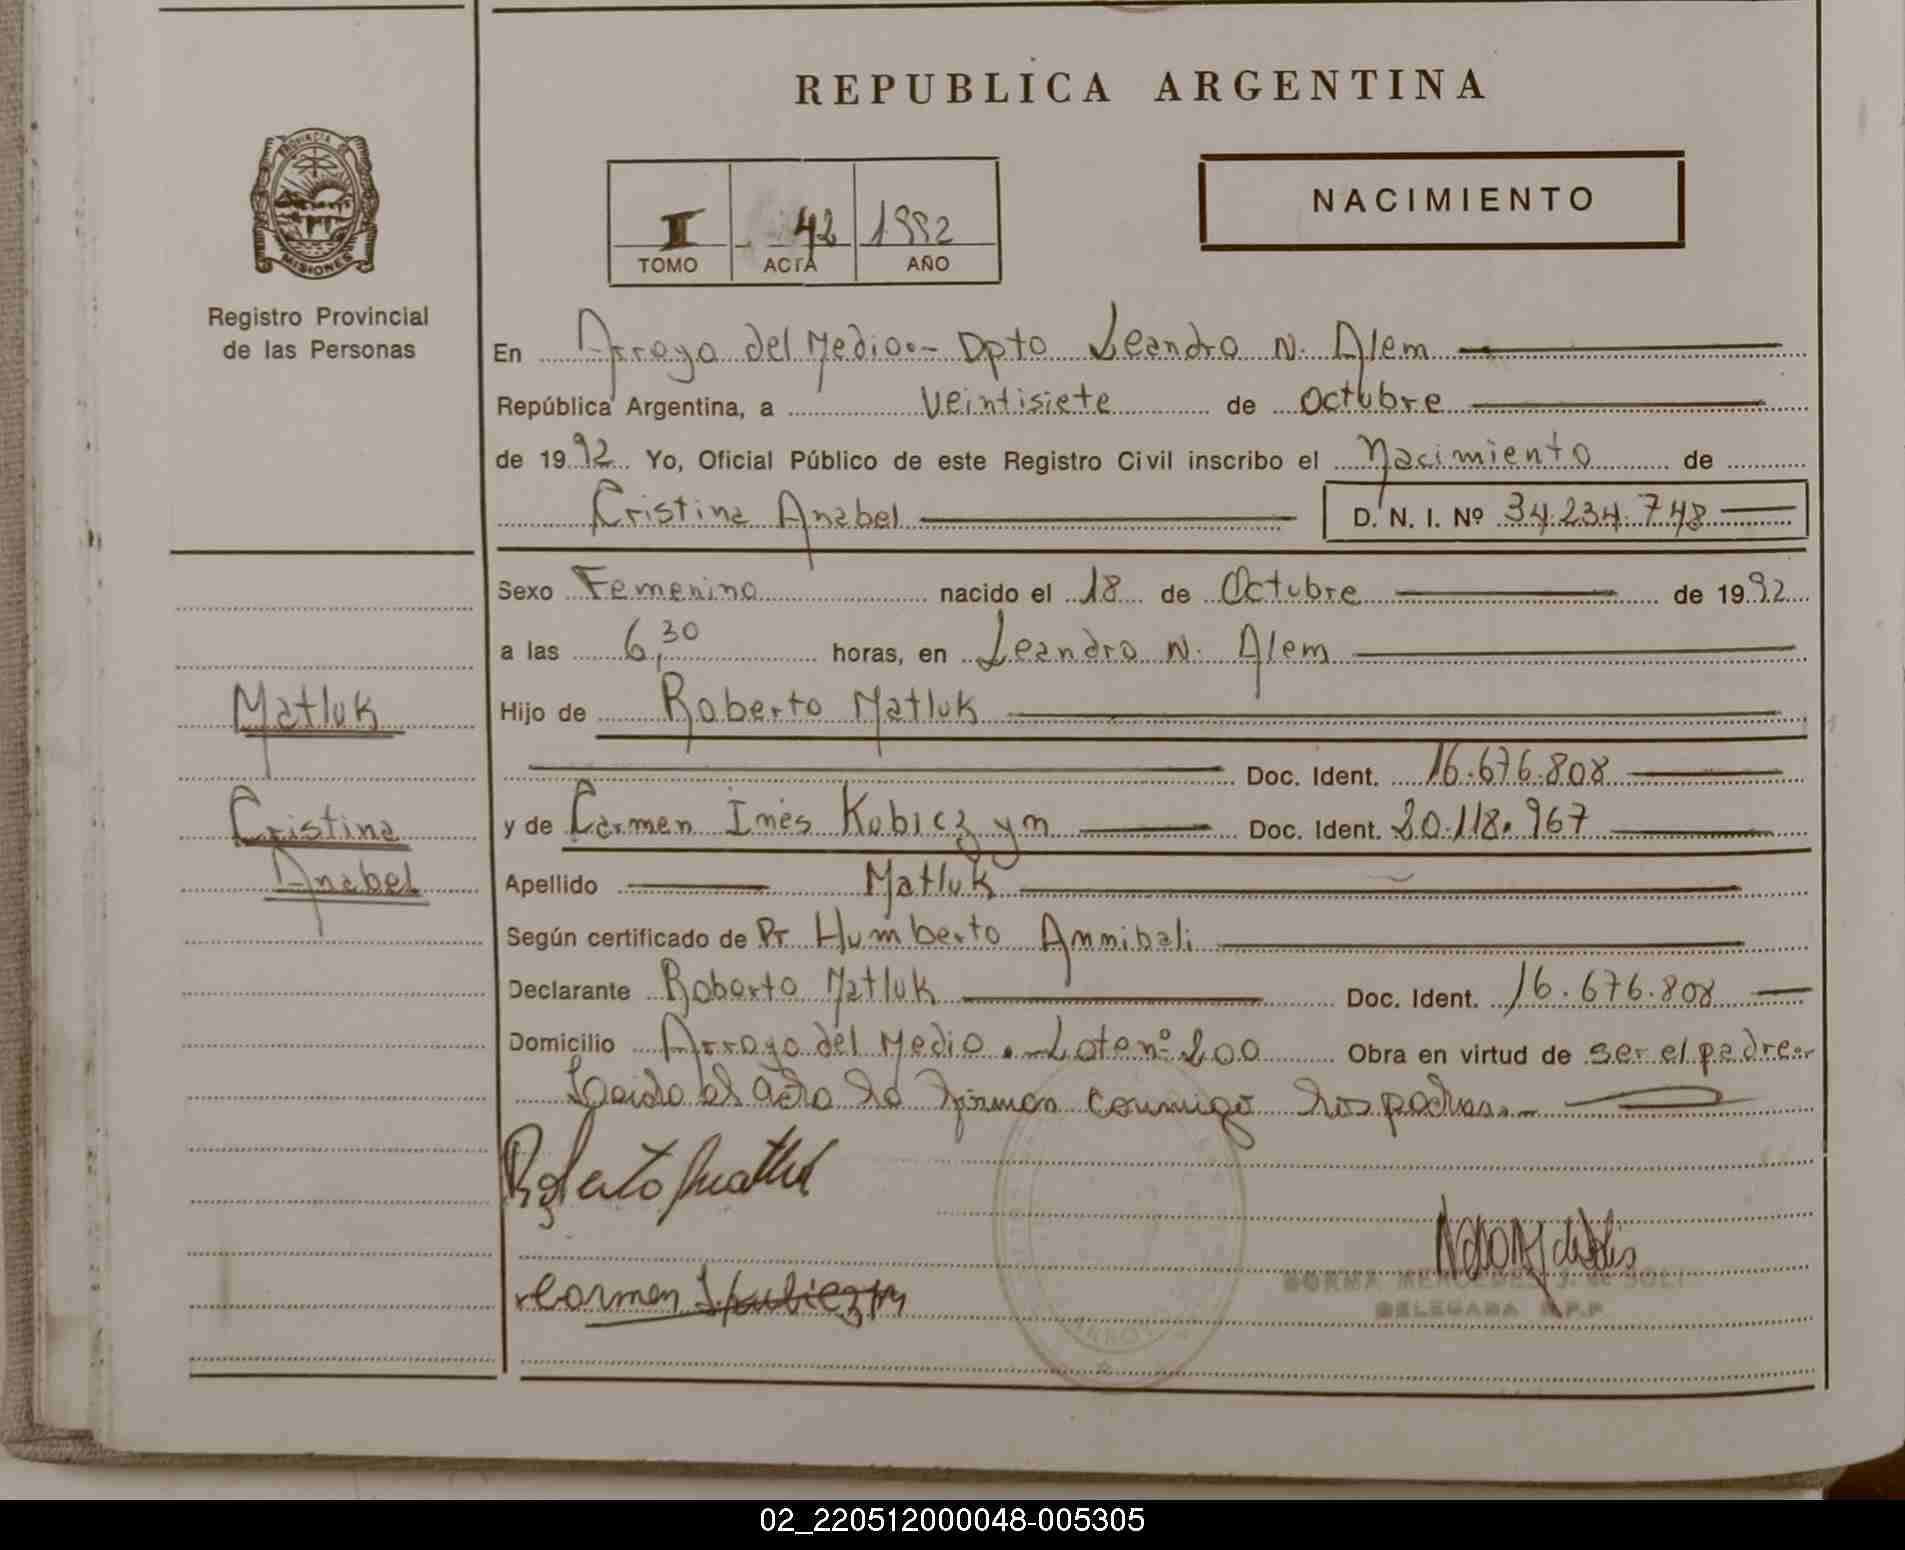 REPUBLICA ARGENTINA
PROVINCIA DE
MISIONES
Registro Provincial
de las Personas
II 42 1992
TOMO ACTA AÑO
NACIMIENTO
En Arroyo del Medio.- Dpto Leandro N. Alem
República Argentina, a Veintisiete de Octubre
de 1992 Yo, Oficial Público de este Registro Civil inscribo el Nacimiento de
Cristina Anabel D. N. I. Nº 34.234.748
Sexo Femenino nacido el 18 de Octubre de 1992
a las 6,30 horas, en Leandro N. Alem
Matluk
Hijo de Roberto Matluk
Doc. Ident. 16.676.808
Cristina
y de Carmen Inés Kubiczyn Doc. Ident. 20.118.967
Anabel
Apellido Matluk
Según certificado de Dr Humberto Annibali
Declarante Roberto Matluk Doc. Ident. 16.676.808
Domicilio Arroyo del Medio.- Lote nº 200 Obra en virtud de ser el padre.-
Leida el acta la firman conmigo los padres.-
Roberto Matluk
Carmen I. Kubiczyn
NORMA MERCEDES J. de SOLI
DELEGADA R.P.P
02_220512000048-005305